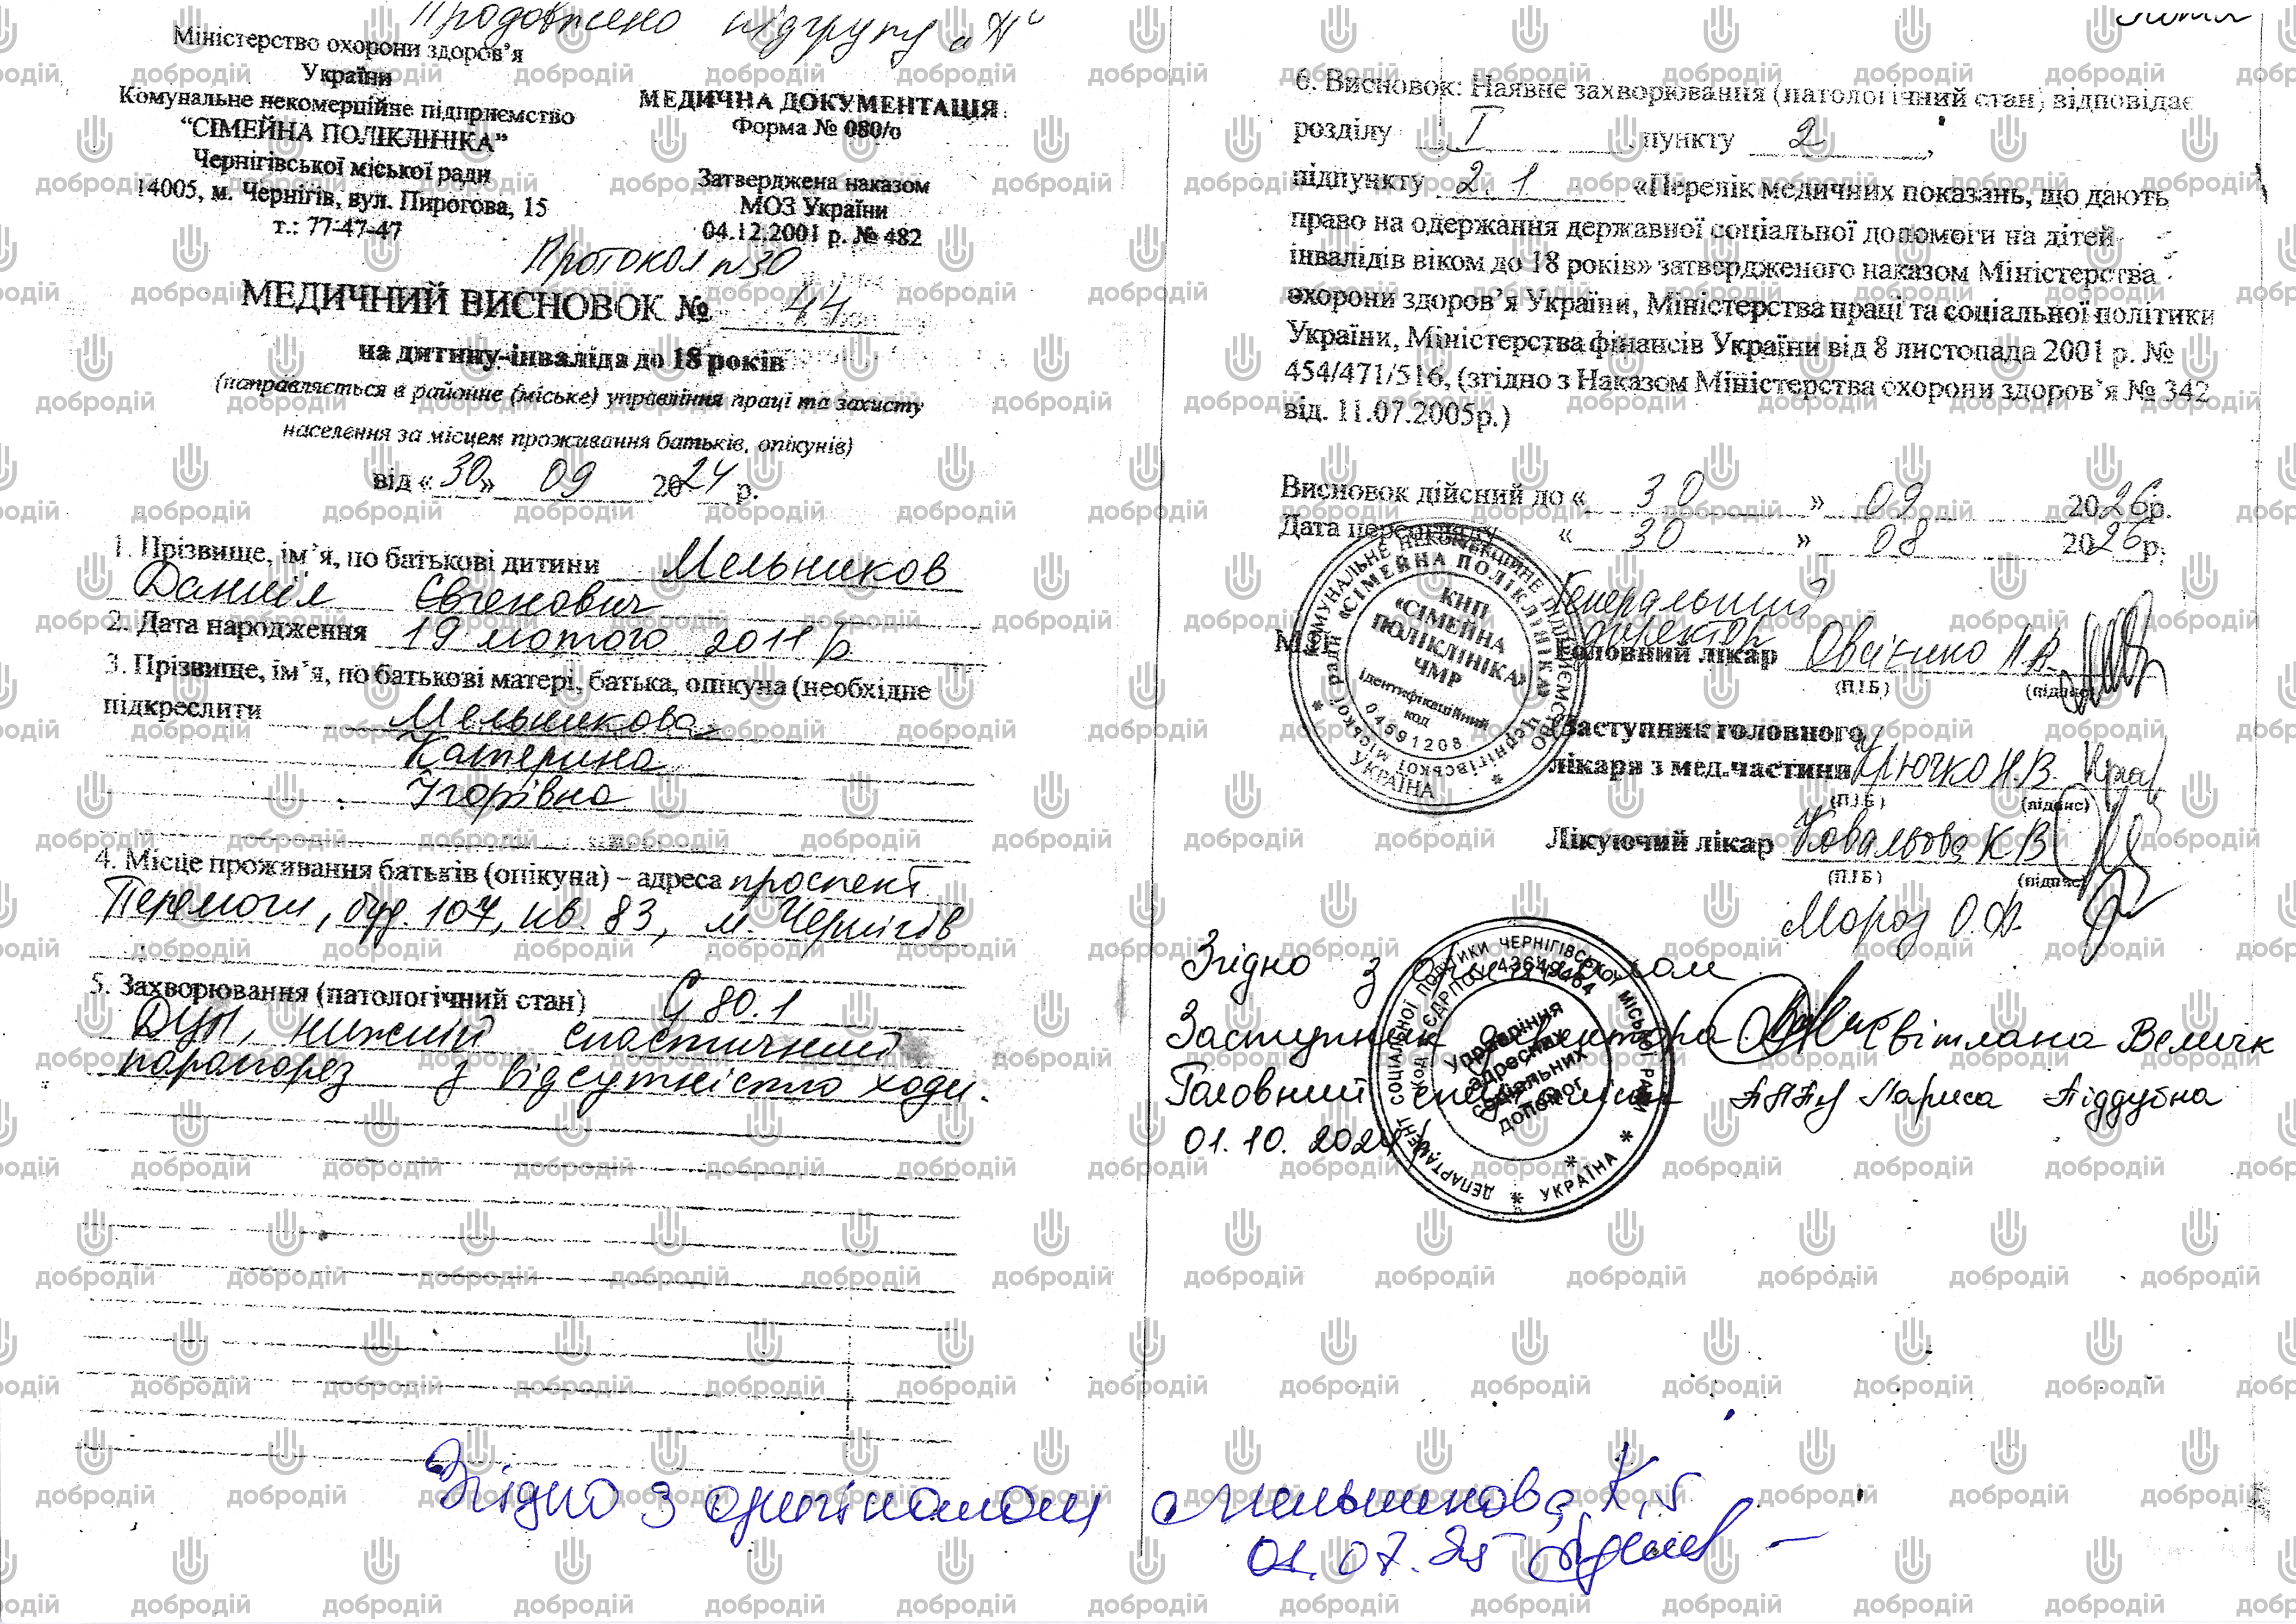 Продовжено підгрупу „А“
Міністерство охорони здоров’я
України
Комунальне некомерційне підприємство
“СІМЕЙНА ПОЛІКЛІНІКА”
Чернігівської міської ради
14005, м. Чернігів, вул. Пирогова, 15
т.: 77-47-47
МЕДИЧНА ДОКУМЕНТАЦІЯ
Форма № 080/о
Затверджена наказом
МОЗ України
04.12.2001 р. № 482
Протокол n 30
МЕДИЧНИЙ ВИСНОВОК № 44
на дитину-інваліда до 18 років
(направляється в районне (міське) управління праці та захисту
населення за місцем проживання батьків, опікунів)
від «30» 09 2024 р.
1. Прізвище, ім’я, по батькові дитини Мельников
Данніїл Євгенович
2. Дата народження 19 лютого 2011 р
3. Прізвище, ім’я, по батькові матері, батька, опікуна (необхідне
підкреслити Мельникова
Катерина
Ігорівна
4. Місце проживання батьків (опікуна) – адреса проспект
Перемоги, буд. 107, кв. 83, м. Чернігів
5. Захворювання (патологічний стан) G 80.1
ДЦП, нижній спастичний
парапарез з відсутністю ходи.
6. Висновок: Наявне захворювання (патологічний стан) відповідає
розділу I, пункту 2,
підпункту 2.1 «Перелік медичних показань, що дають
право на одержання державної соціальної допомоги на дітей
інвалідів віком до 18 років» затвердженого наказом Міністерства
охорони здоров’я України, Міністерства праці та соціальної політики
України, Міністерства фінансів України від 8 листопада 2001 р. №
454/471/516, (згідно з Наказом Міністерства охорони здоров’я № 342
від. 11.07.2005р.)
Висновок дійсний до «30» 09 2026р.
Дата переогляду «30» 08 2026р.
КОМУНАЛЬНЕ НЕКОМЕРЦІЙНЕ ПІДПРИЄМСТВО
«СІМЕЙНА ПОЛІКЛІНІКА»
Чернігівської міської ради
УКРАЇНА
КНП
«СІМЕЙНА
ПОЛІКЛІНІКА»
ЧМР
Ідентифікаційний
код
04591208
Генеральний
директор
Головний лікар
(П.І.Б) (підпис)
Заступник головного
лікаря з мед.частини Крючко Н.В.
(П.І.Б) (підпис)
Лікуючий лікар Ковальова К В
(П.І.Б) (підпис)
Мороз О.А.
Згідно з оригіналом
Заступник директора Світлана Велičк
Головний спеціаліст Лариса Піддубна
01.10.2024
ДЕПАРТАМЕНТ СОЦІАЛЬНОЇ ПОЛІТИКИ ЧЕРНІГІВСЬКОЇ МІСЬКОЇ РАДИ
УКРАЇНА
Управління
адресних
соціальних
допомог
Згідно з оригіналом Мельникова К.І
01.07.25
добродій